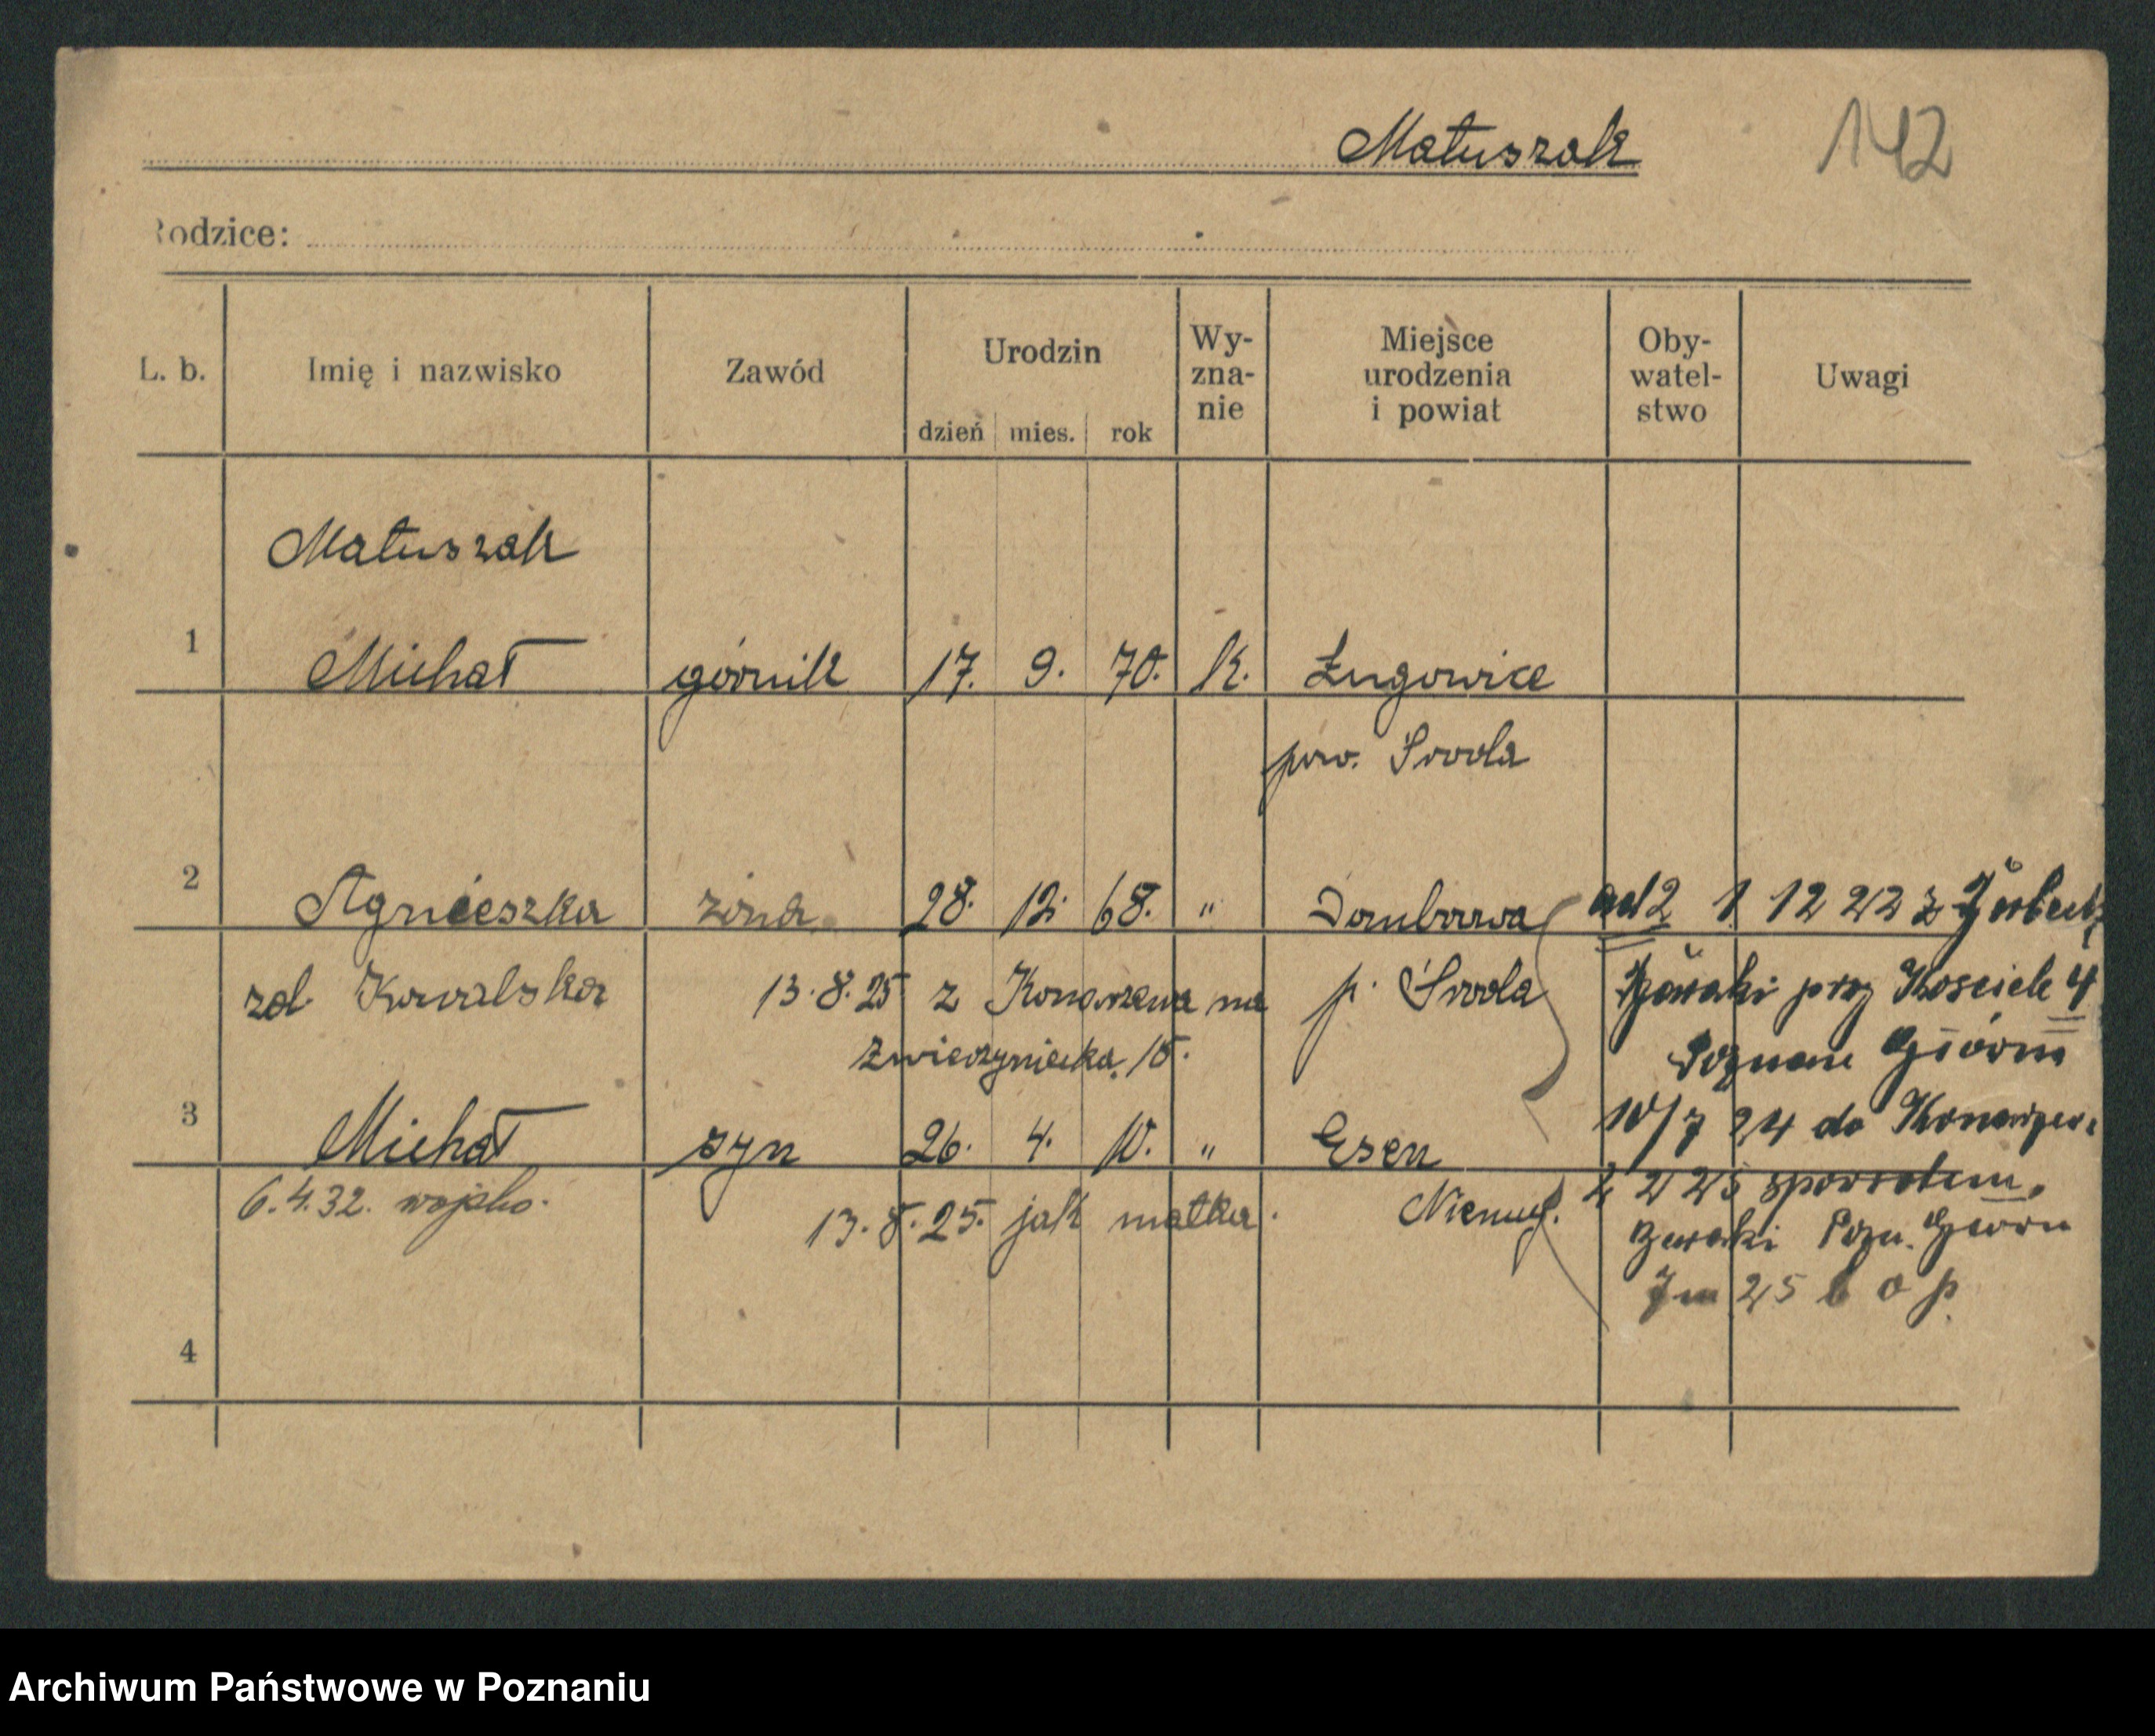 Matuszak
142
Rodzice:
L. b. Imię i nazwisko Zawód Urodzin dzień mies. rok Wy-zna-nie Miejsce urodzenia i powiat Oby-watel-stwo Uwagi
Matuszak
1 Michał górnik 17. 9. 70. K. Żugowice
pow. Środa
2 Agnieszka żona 28. 12. 68. " Dombrowa ad 2 1 12 22 z
zd. Kowalska 13.8.25 z Konarzewa na p. Środa przy Kosciele 4
Zwierzyniecka 15. Poznań
3 Michał syn 26. 4. 10. " Esen 10/7 24 do
6.4.32. wojsko. 13.8.25. jak matka. Niemcy. 2 2 25 spowrotem
4 25
Archiwum Państwowe w Poznaniu